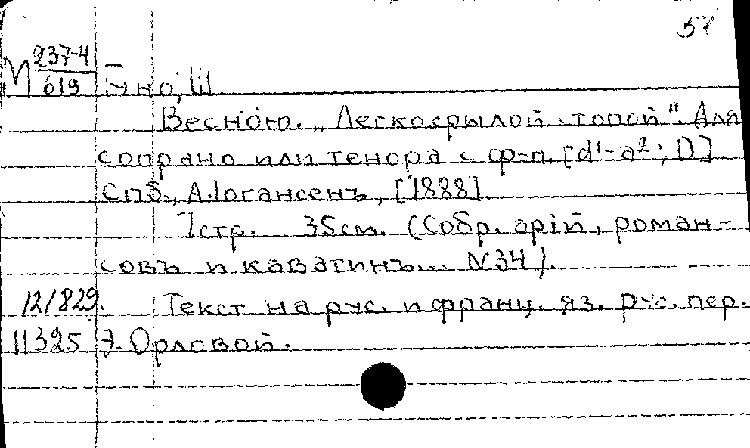 57
М 237-4 / 619 Гуно, Ш
Весною. „Легкокрылой толпой“. Для
сопрано или тенора с ф-п. [d¹-a²; D]
Спб., А. Иогансенъ, [1888].
7 стр. 35 см. (Собр. арiй, роман-
совъ и каватинъ... N 34).
12/829. Текст на рус. и франц. яз. рус. пер.
11325 Э. Орловой.